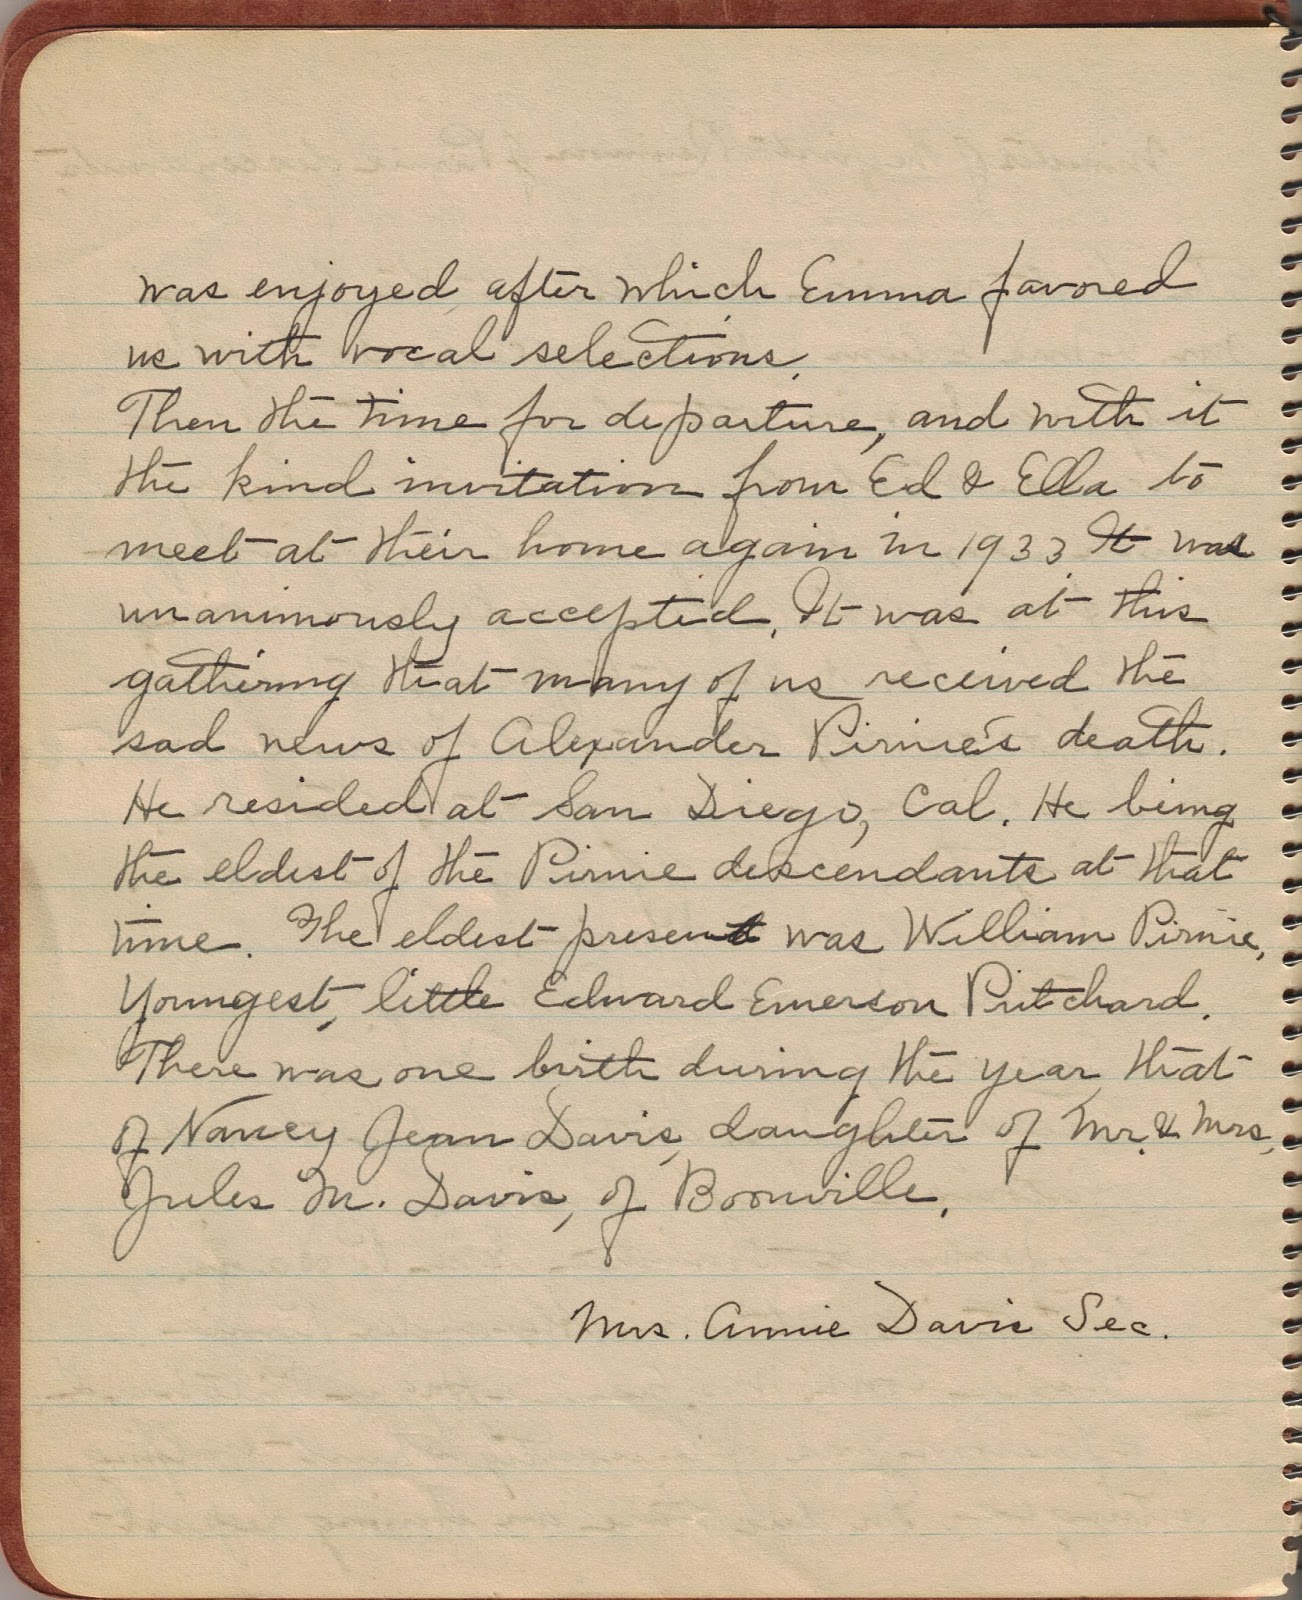 was enjoyed, after which Emma favored
us with vocal selections.
Then the time for departure, and with it
the kind invitation from Ed & Ella to
meet at their home again in 1933 It was
unanimously accepted. It was at this
gathering that many of us received the
sad news of Alexander Pirnie's death.
He resided at San Diego, Cal. He being
the eldest of the Pirnie descendants at that
time. The eldest present was William Pirnie,
Youngest, little Edward Emerson Pritchard.
There was one birth during the year that
of Nancy Jean Davis, daughter of Mr. & Mrs.
Jules M. Davis, of Boonville.
Mrs. Annie Davis Sec.